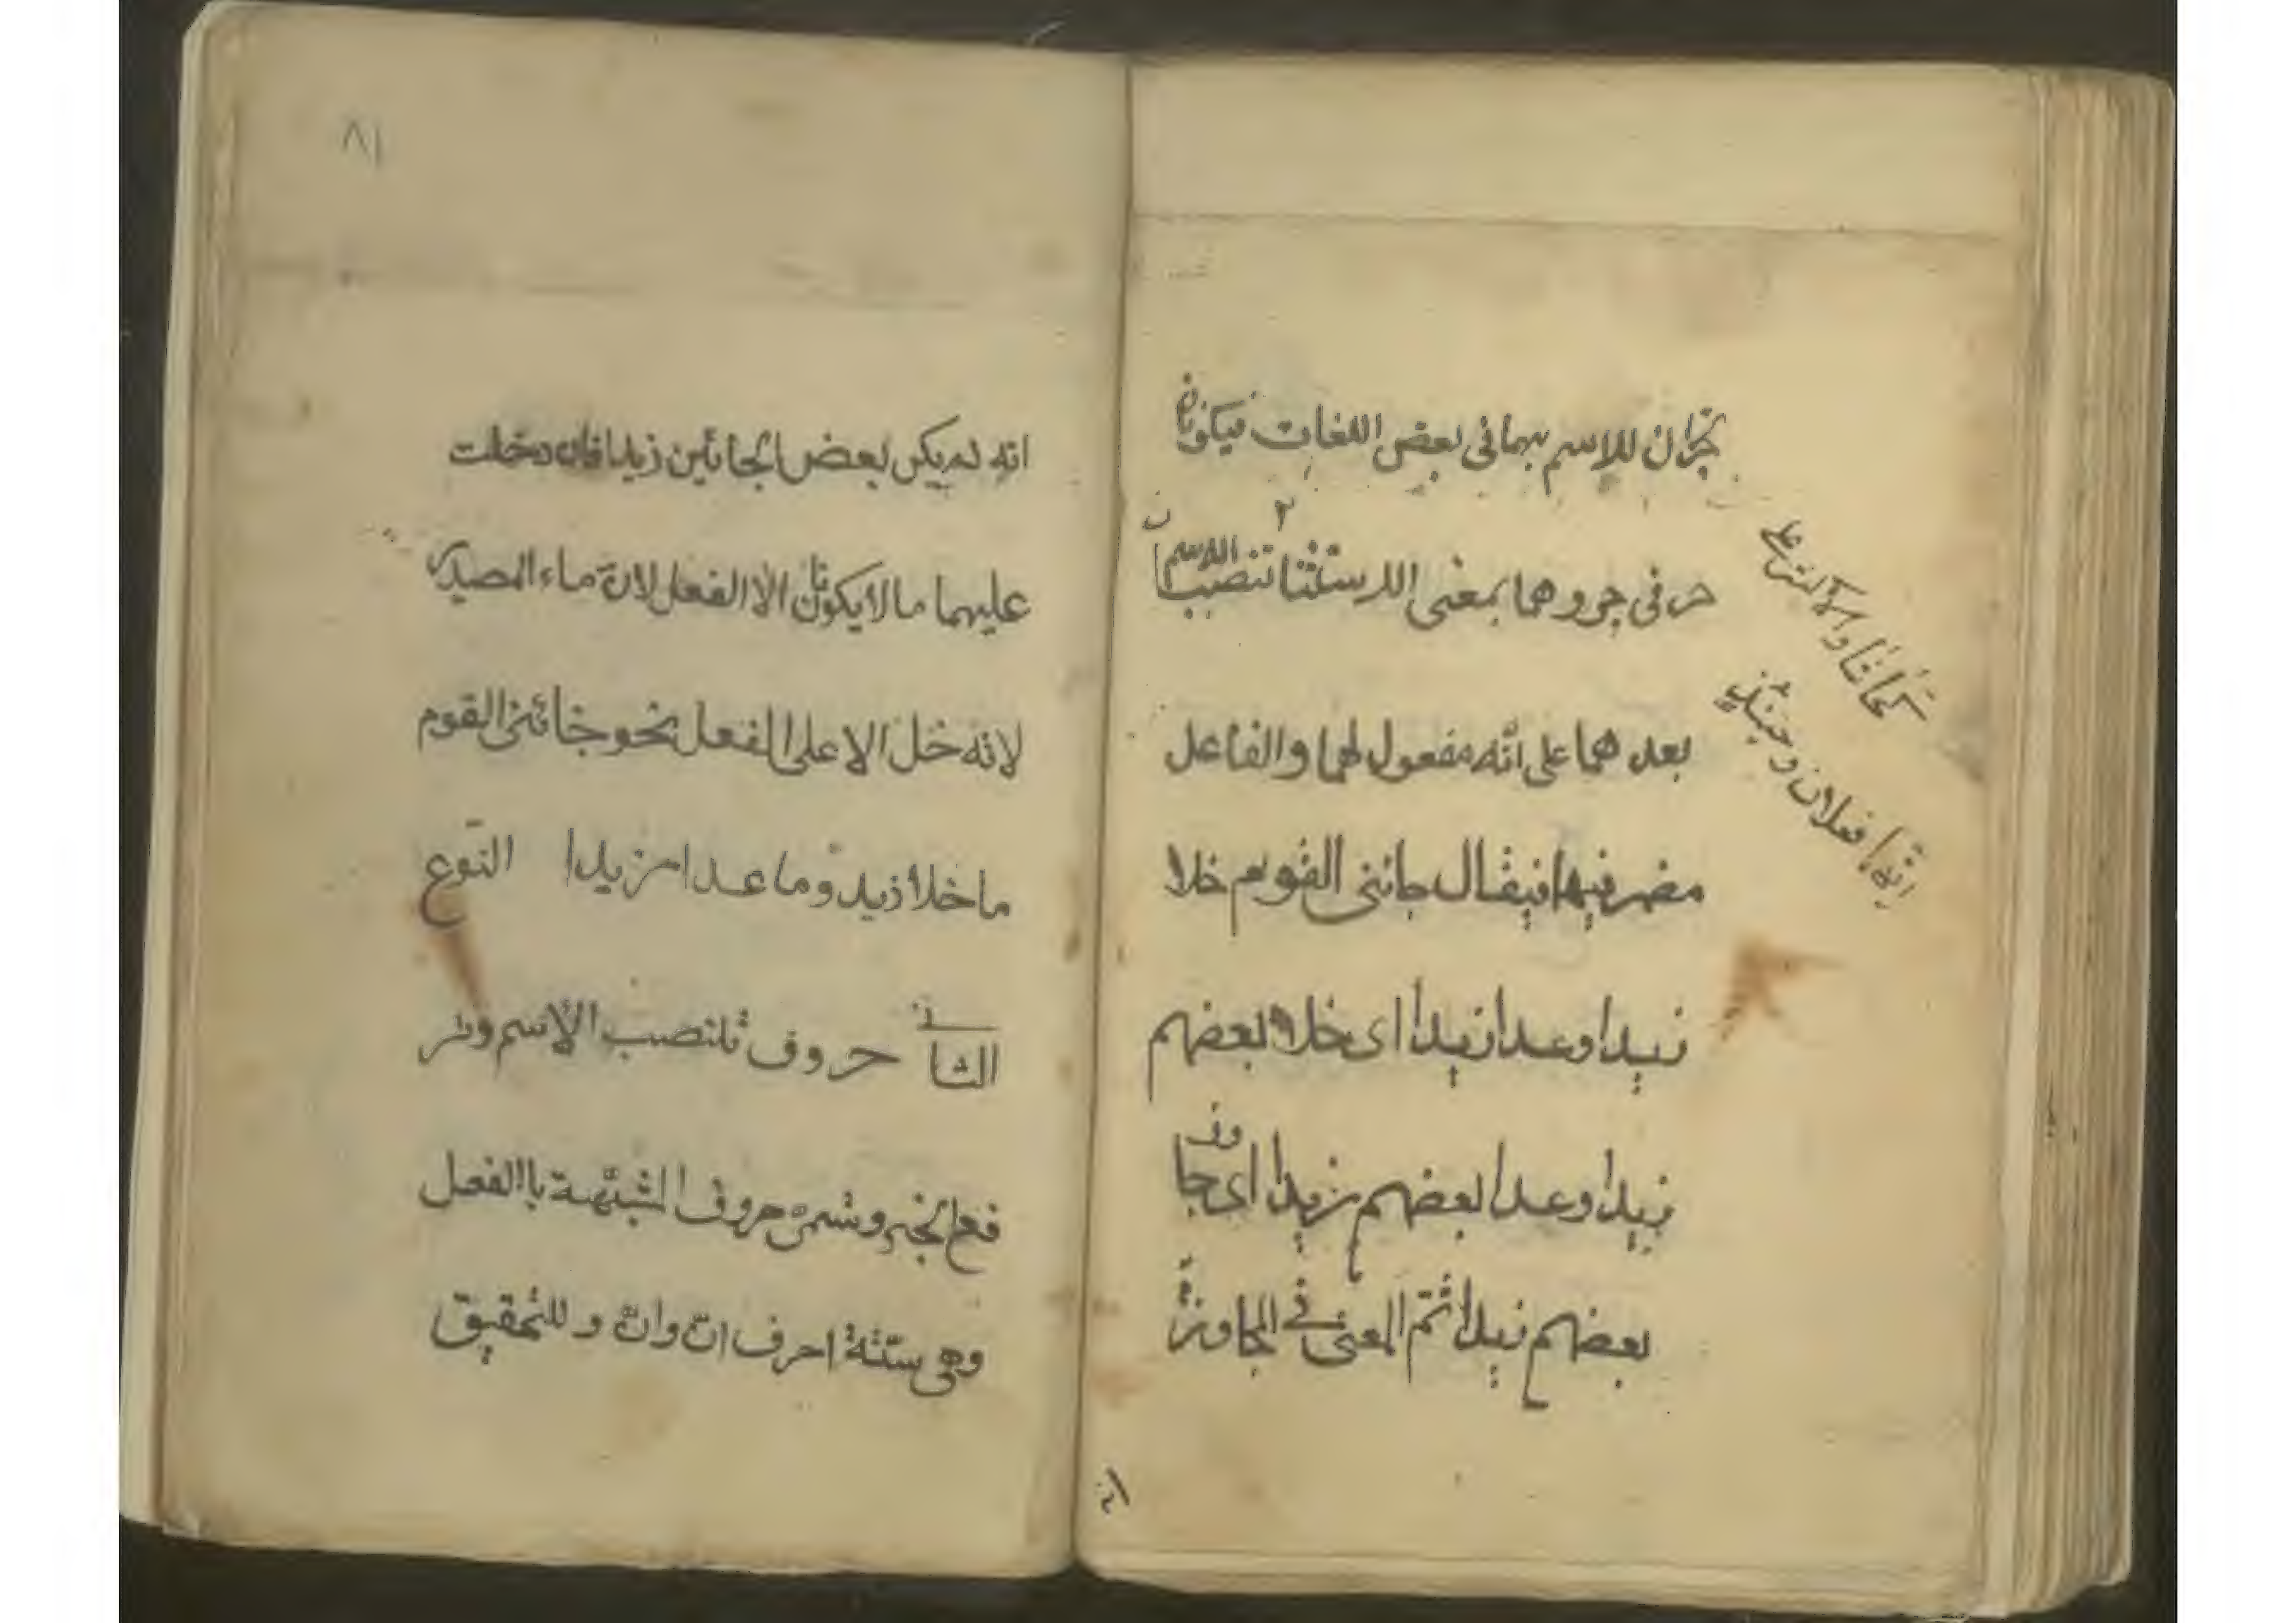 يجران للاسم بهما فى بعض اللغات فيكونان
حر فى جر وهما بمعنى الاستثنا تنصب الاسم
بعد هما على انه مفعول لهما والفاعل
مضمر فيهما فيقال جائنى القوم خلا
زيدا وعدا زيدا اى خلا بعضهم
زيدا وعدا بعضهم زيدا اى جاوز
بعضهم زيدا ثم المعنى فى المجاوزة
كحاشا والاكثر على
انهما فعلان وحينئذ
انه
٨١
انه لم يكن بعض الجائين زيدا فان دخلت
عليهما ما لا يكونان الا الفعل لان ماء المصدر
لانه خل الا على الفعل نحو جائنى القوم
ما خلا زيد وما عدا زيدا النوع
الثانى حروف تنصب الاسم وتر
فع الخبر وتسمى حروف المشبهة باالفعل
وهى ستة احرف ان وان و للتحقيق